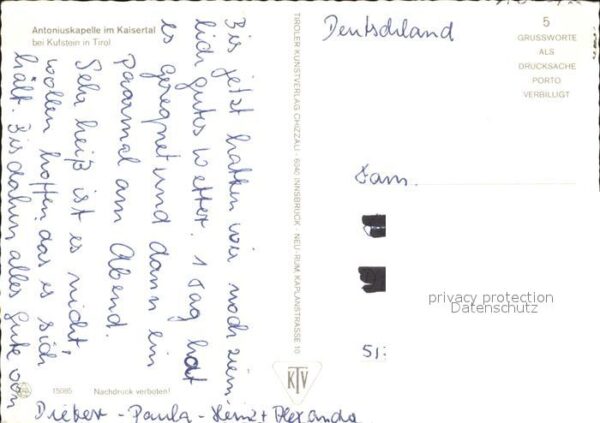 Antoniuskapelle im Kaisertal
bei Kufstein in Tirol
Bis jetzt hatten wir noch ziem-
lich gutes Wetter. 1 Tag hat
es geregnet und dann ein
paarmal am Abend.
Sehr heiß ist es nicht,
wollen hoffen, das es sich
hält. Bis dahin alles Gute von
Dieter - Paula - Heinz +
15085 Nachdruck verboten!
TIROLER KUNSTVERLAG CHIZZALI · 6040 INNSBRUCK · NEU-RUM, KAPLANSTRASSE 10
KTV
Deutschland
5
GRUSSWORTE
ALS
DRUCKSACHE
PORTO
VERBILLIGT
Fam.
privacy protection
Datenschutz
51